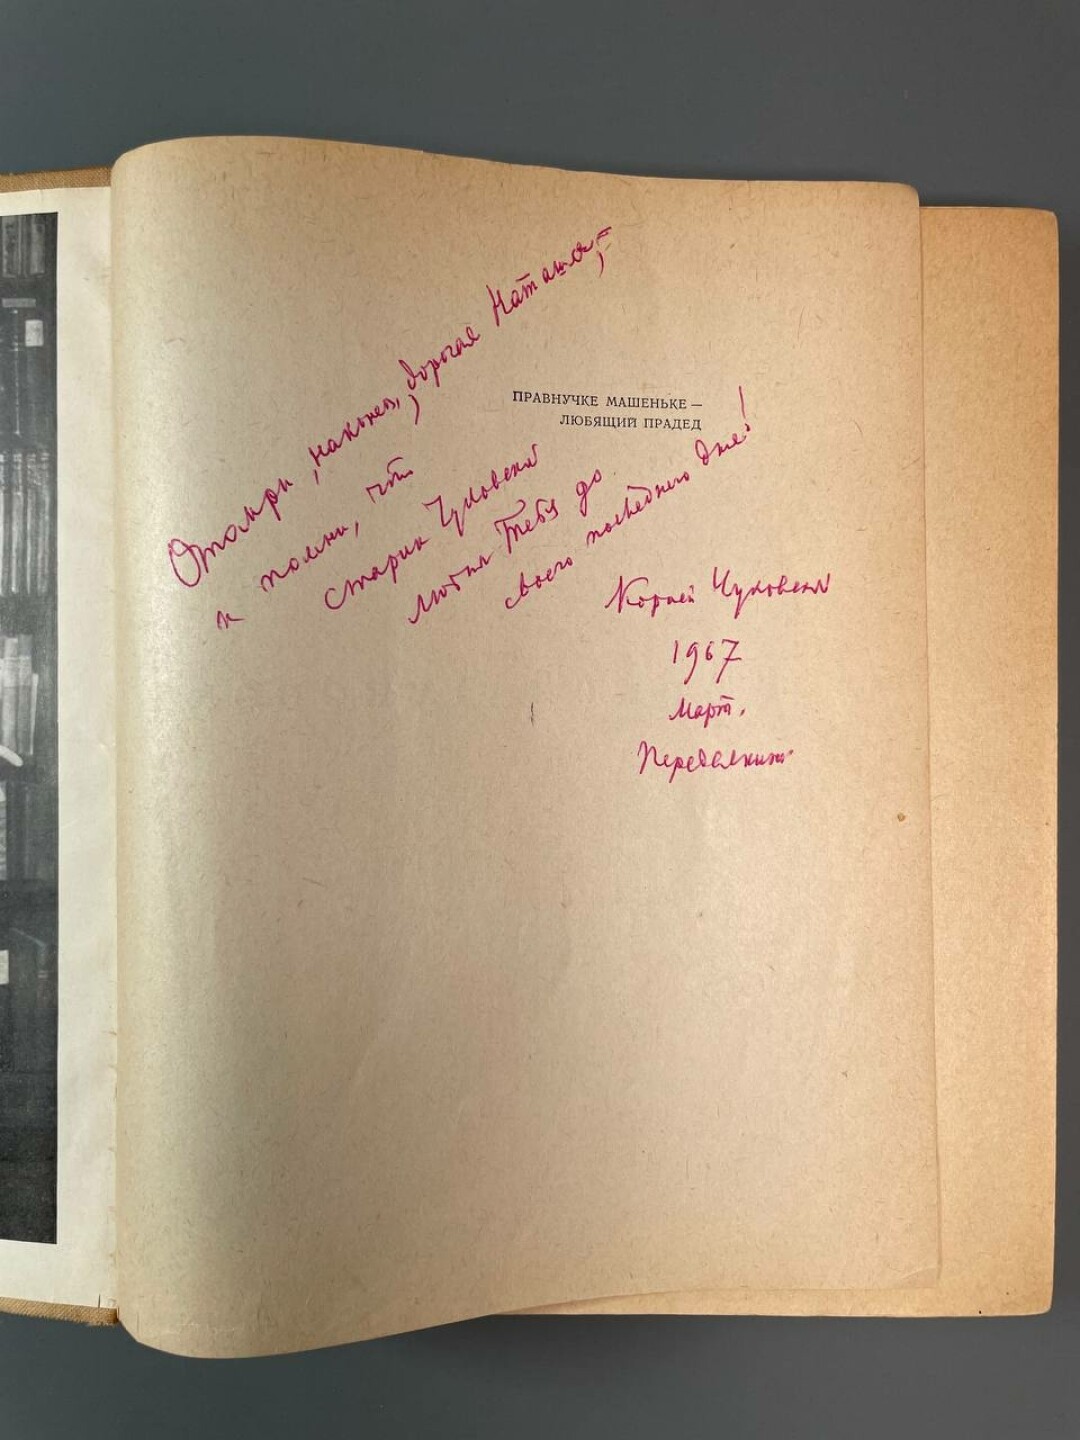 Отомри, наконец, дорогая Наташа, –
ПРАВНУЧКЕ МАШЕНЬКЕ —
ЛЮБЯЩИЙ ПРАДЕД
и помни, что
старик Чуковский
любил Тебя до
своего последнего дня!
Корней Чуковский
1967
Март.
Переделкино